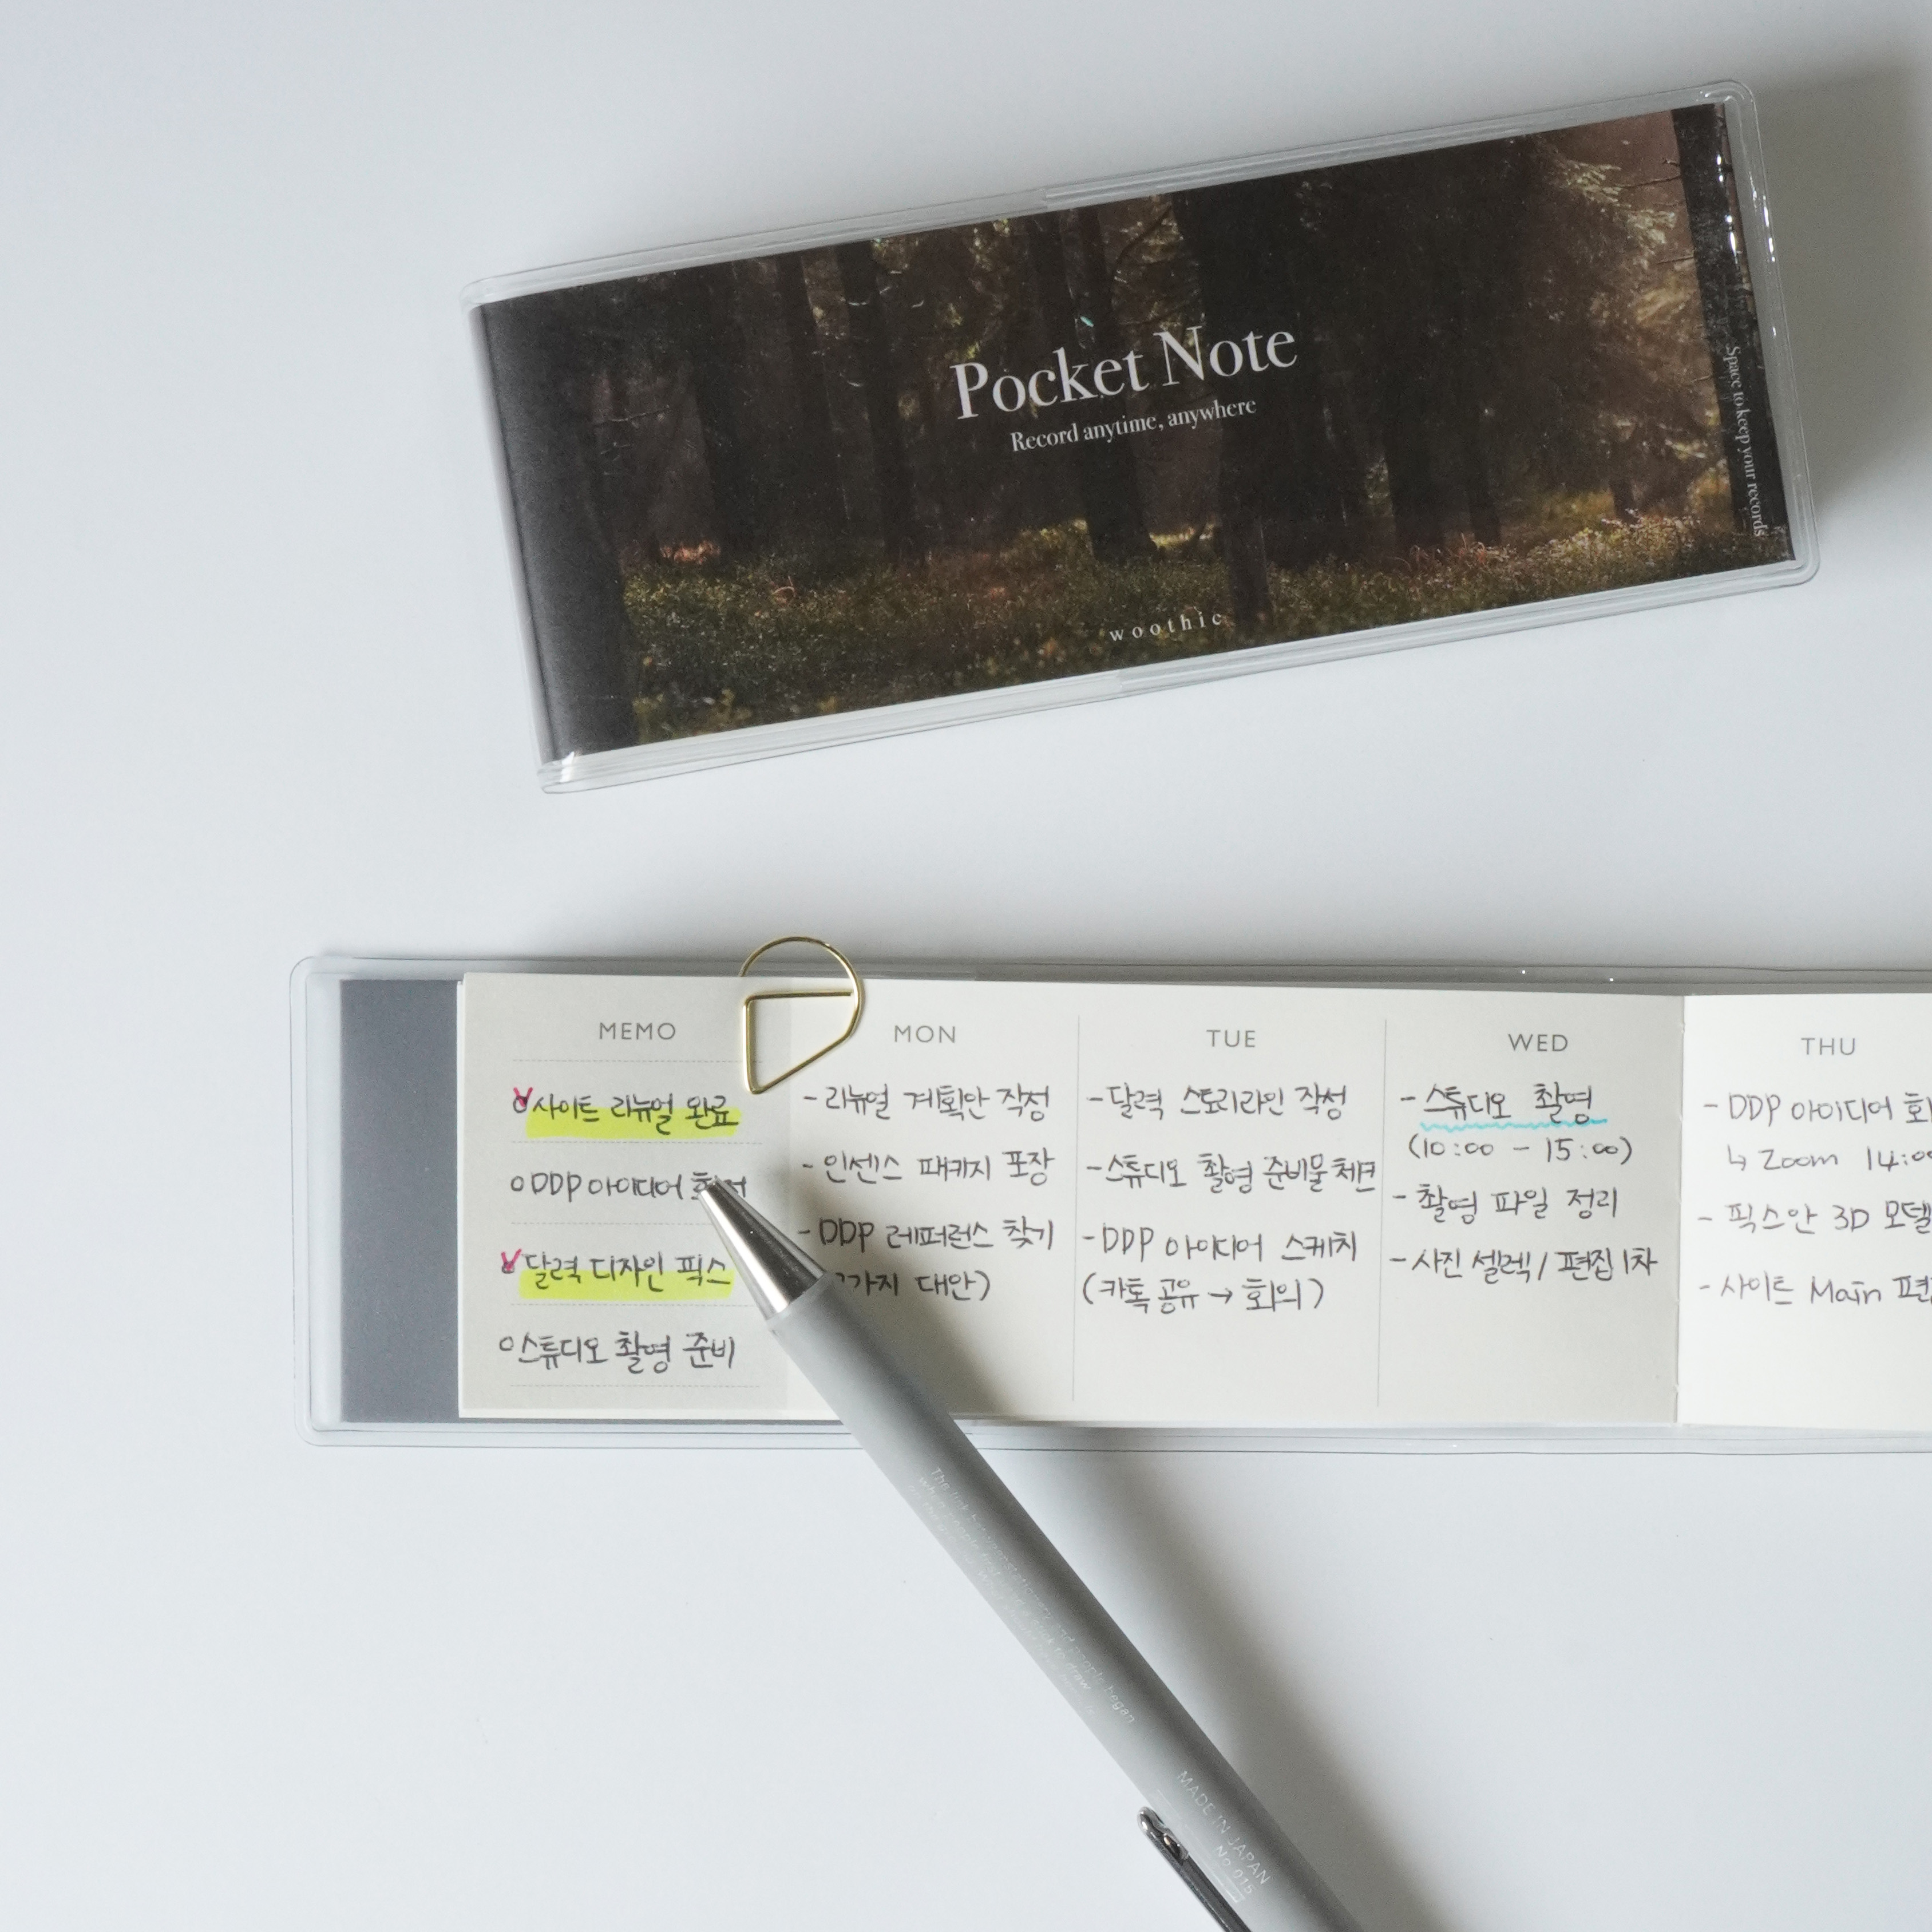 Pocket Note
Record anytime, anywhere
woothic
Space to keep your records
MEMO
사이트 리뉴얼 완료
DDP 아이디어
달력 디자인 픽스
스튜디오 촬영 준비
MON
- 리뉴얼 계획안 작성
- 인센스 패키지 포장
- DDP 레퍼런스 찾기
가지 대안)
TUE
- 달력 스토리라인 작성
- 스튜디오 촬영 준비물 체크
- DDP 아이디어 스케치
(카톡 공유 → 회의)
WED
- 스튜디오 촬영
(10:00 - 15:00)
- 촬영 파일 정리
- 사진 셀렉 / 편집 1차
THU
- DDP 아이디어
↳ Zoom 14:00
- 픽스안 3D 모델
- 사이트 Main
MADE IN JAPAN
No.015